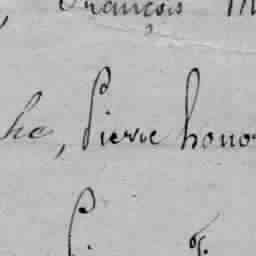 François
he, Pierre honor